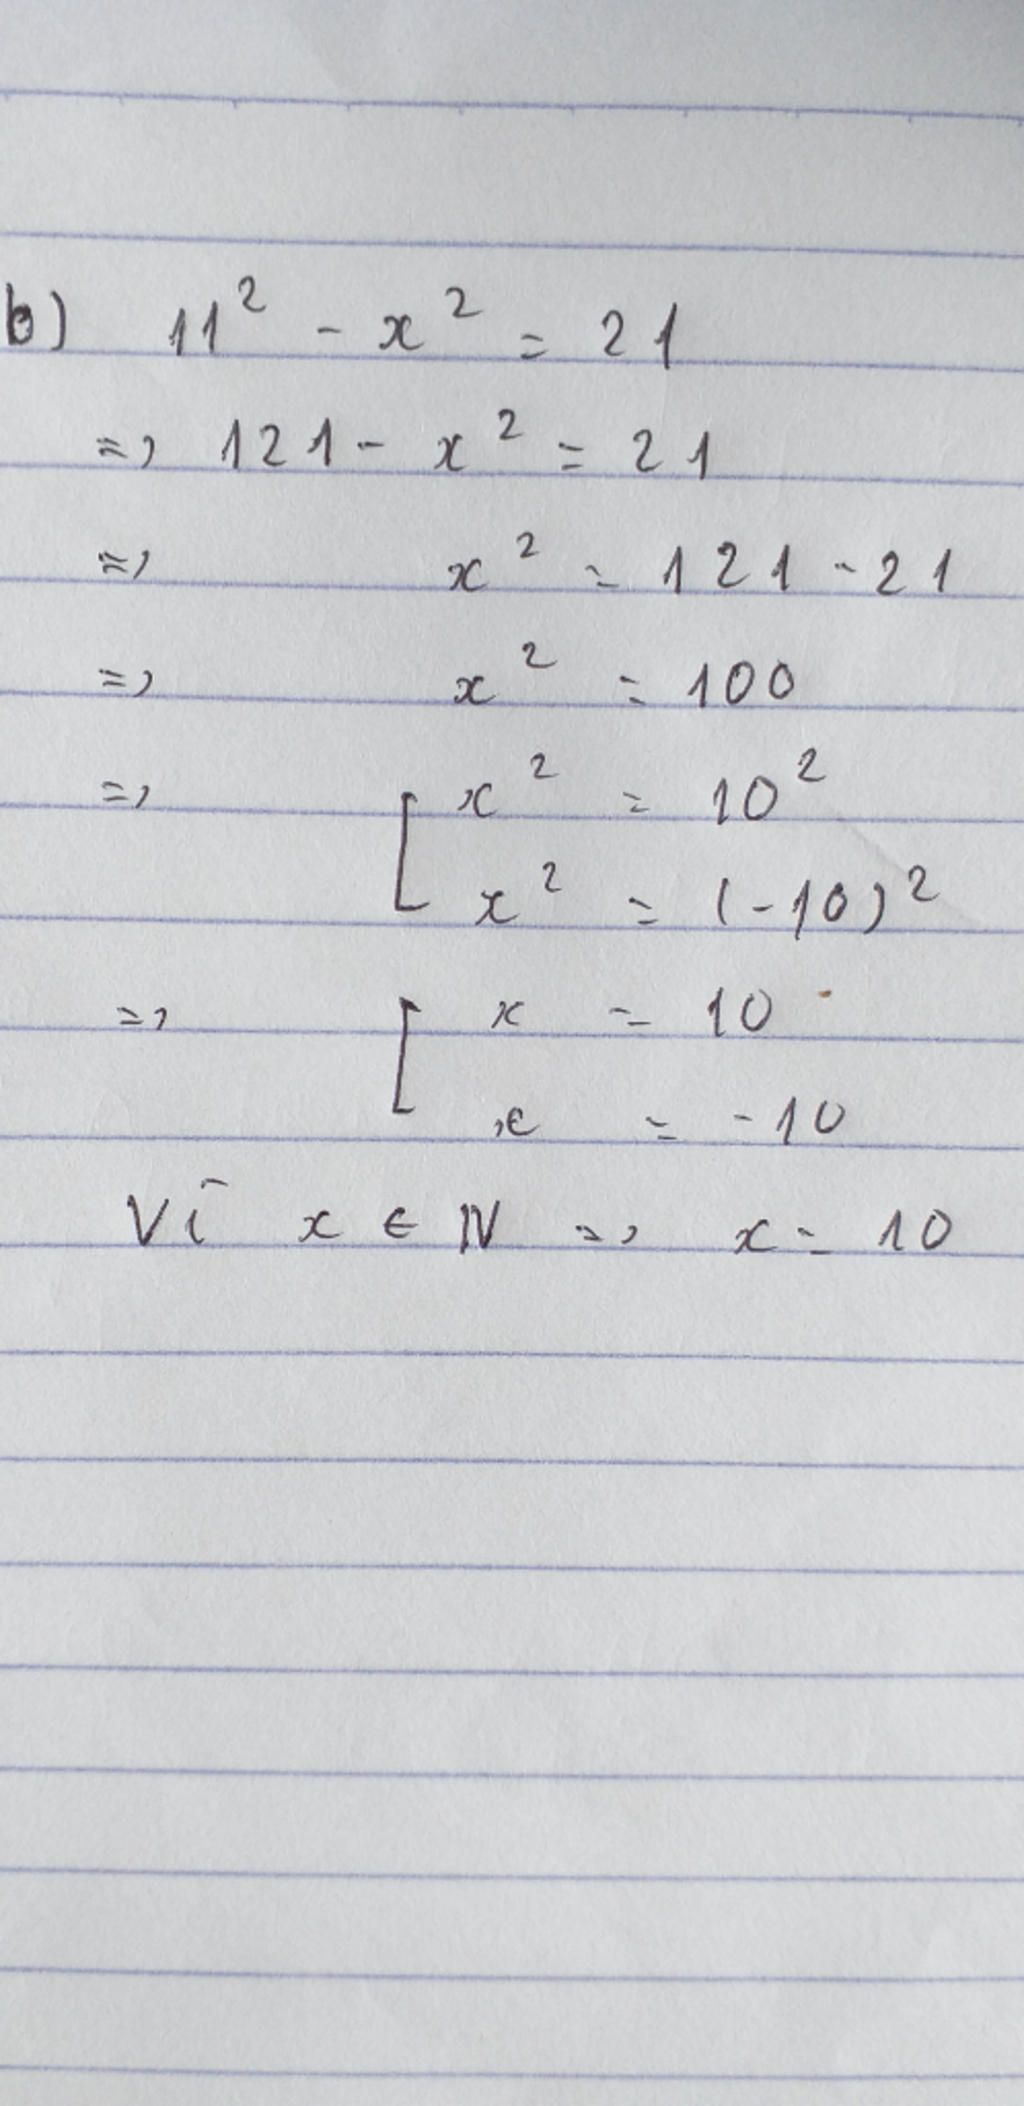 b) 11² - x² = 21
=> 121 - x² = 21
=> x² = 121 - 21
=> x² = 100
=> [ x² = 10²
x² = (-10)²
=> [ x = 10
x = -10
Vì x ∈ N => x = 10